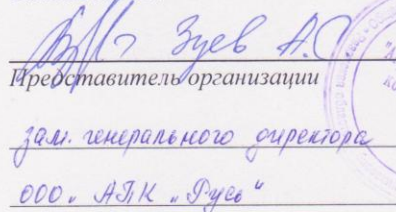 Зуев А.С
Представитель организации
зам. генерального директора
ООО „АПК „Русь"